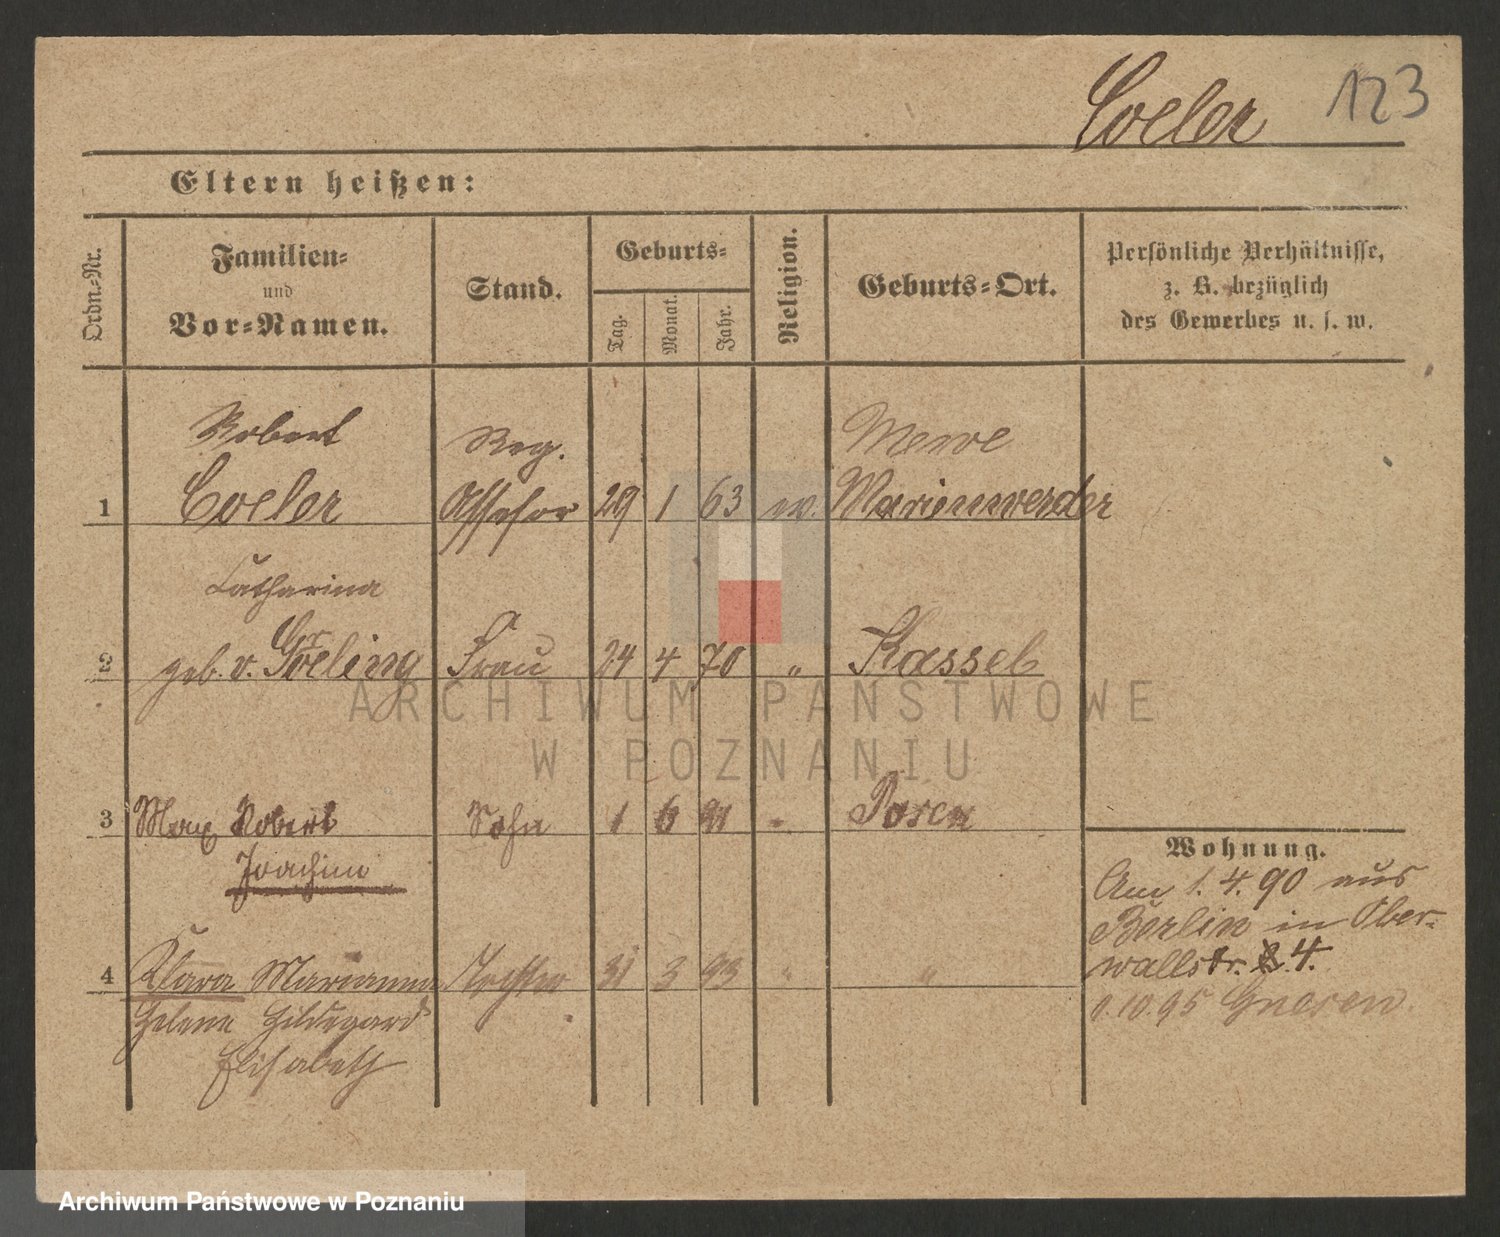 Coeler 123
Eltern heißen:
Ordn.-Nr.
Familien-
und
Vor-Namen.
Stand.
Geburts-
Tag.
Monat.
Jahr.
Religion.
Geburts-Ort.
Persönliche Verhältnisse,
z. B. bezüglich
des Gewerbes u. s. w.
Robert Reg. Mewe
1 Coeler Assessor 29 1 63 ev. Marienwerder
Catharina
2 geb. v. Frau 24 4 70 " Kassel
3 Max Robert Sohn 1 6 91 " Posen
Joachim
4 Klara Marianne Tochter 31 3 93 " "
Helene Hildegard
Elisabeth
Wohnung.
Am 1. 4. 90 aus
Berlin in Ober-
wallstr. 4.
10.95 Gnesen.
ARCHIWUM PAŃSTWOWE
W POZNANIU
Archiwum Państwowe w Poznaniu